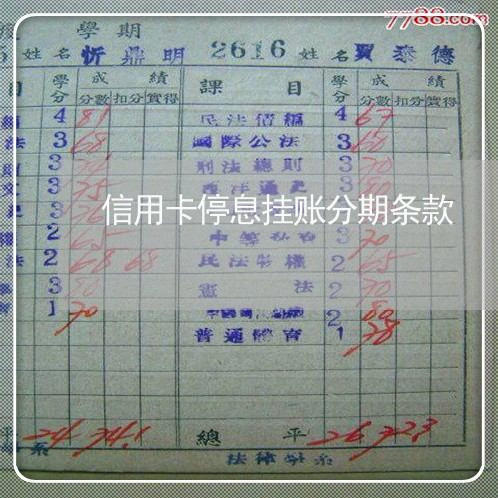 7788.com
學期
5 姓名 忻鼎明 2616 姓名 賈泰德
目 學分 成績 課目 學分 成績
分數 扣分 實得 分數 扣分 實得
4 81 民法債編 4 67
法 3 68 國際公法 3 60
則 3 刑法總則 3 70
3 75 3 80
3
信用卡停息挂账分期条款
2 65 3 70
法 2 68 68 民法物權 2 65
3 80 憲法 2 70
育 1 70 2 80
普通體育 1 78
平 24 74.1 總平 26 72.3
系 法律學系